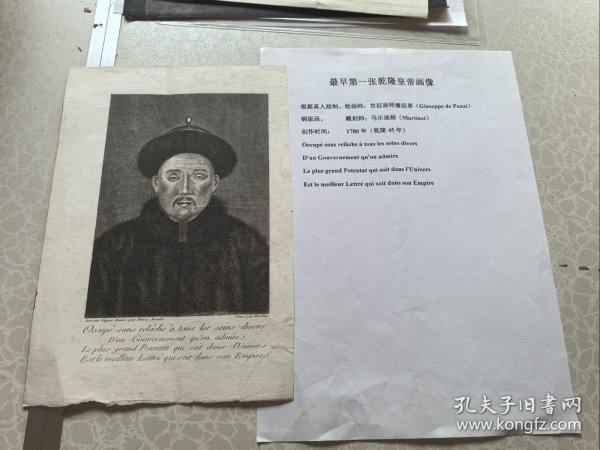 最早第一张乾隆皇帝画像
根据真人绘制，绘画师：宫廷画师潘廷章（Giuseppe de Panzi）
铜版画， 雕刻师：马尔迪耐（Martinet）
创作时间： 1780 年（乾隆 45 年）
Occupé sans relâche à tous les soins divers
D'un Gouvernement qu'on admire
Le plus grand Potentat qui soit dans l'Univers
Est le meilleur Lettré qui soit dans son Empire
par Panzi
Occupé sans relâche à tous les soins divers
D'un Gouvernement qu'on admire,
Le plus grand Potentat qui soit dans l'Univers
Est le meilleur Lettré qui soit dans son Empire.
孔夫子旧书网
www.kongfz.com